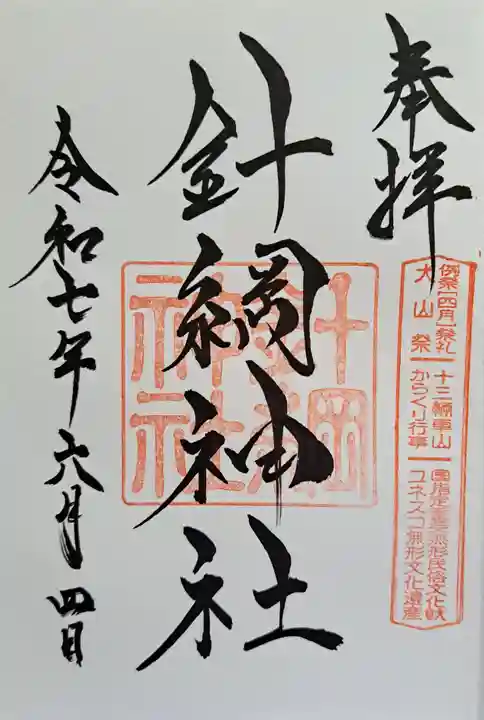 奉拝
例祭[四月]発礼
犬山祭
十三輌車山
からくり行事
国指定重要無形民俗文化財
ユネスコ無形文化遺産
針綱神社
針綱
神社
令和七年六月四日